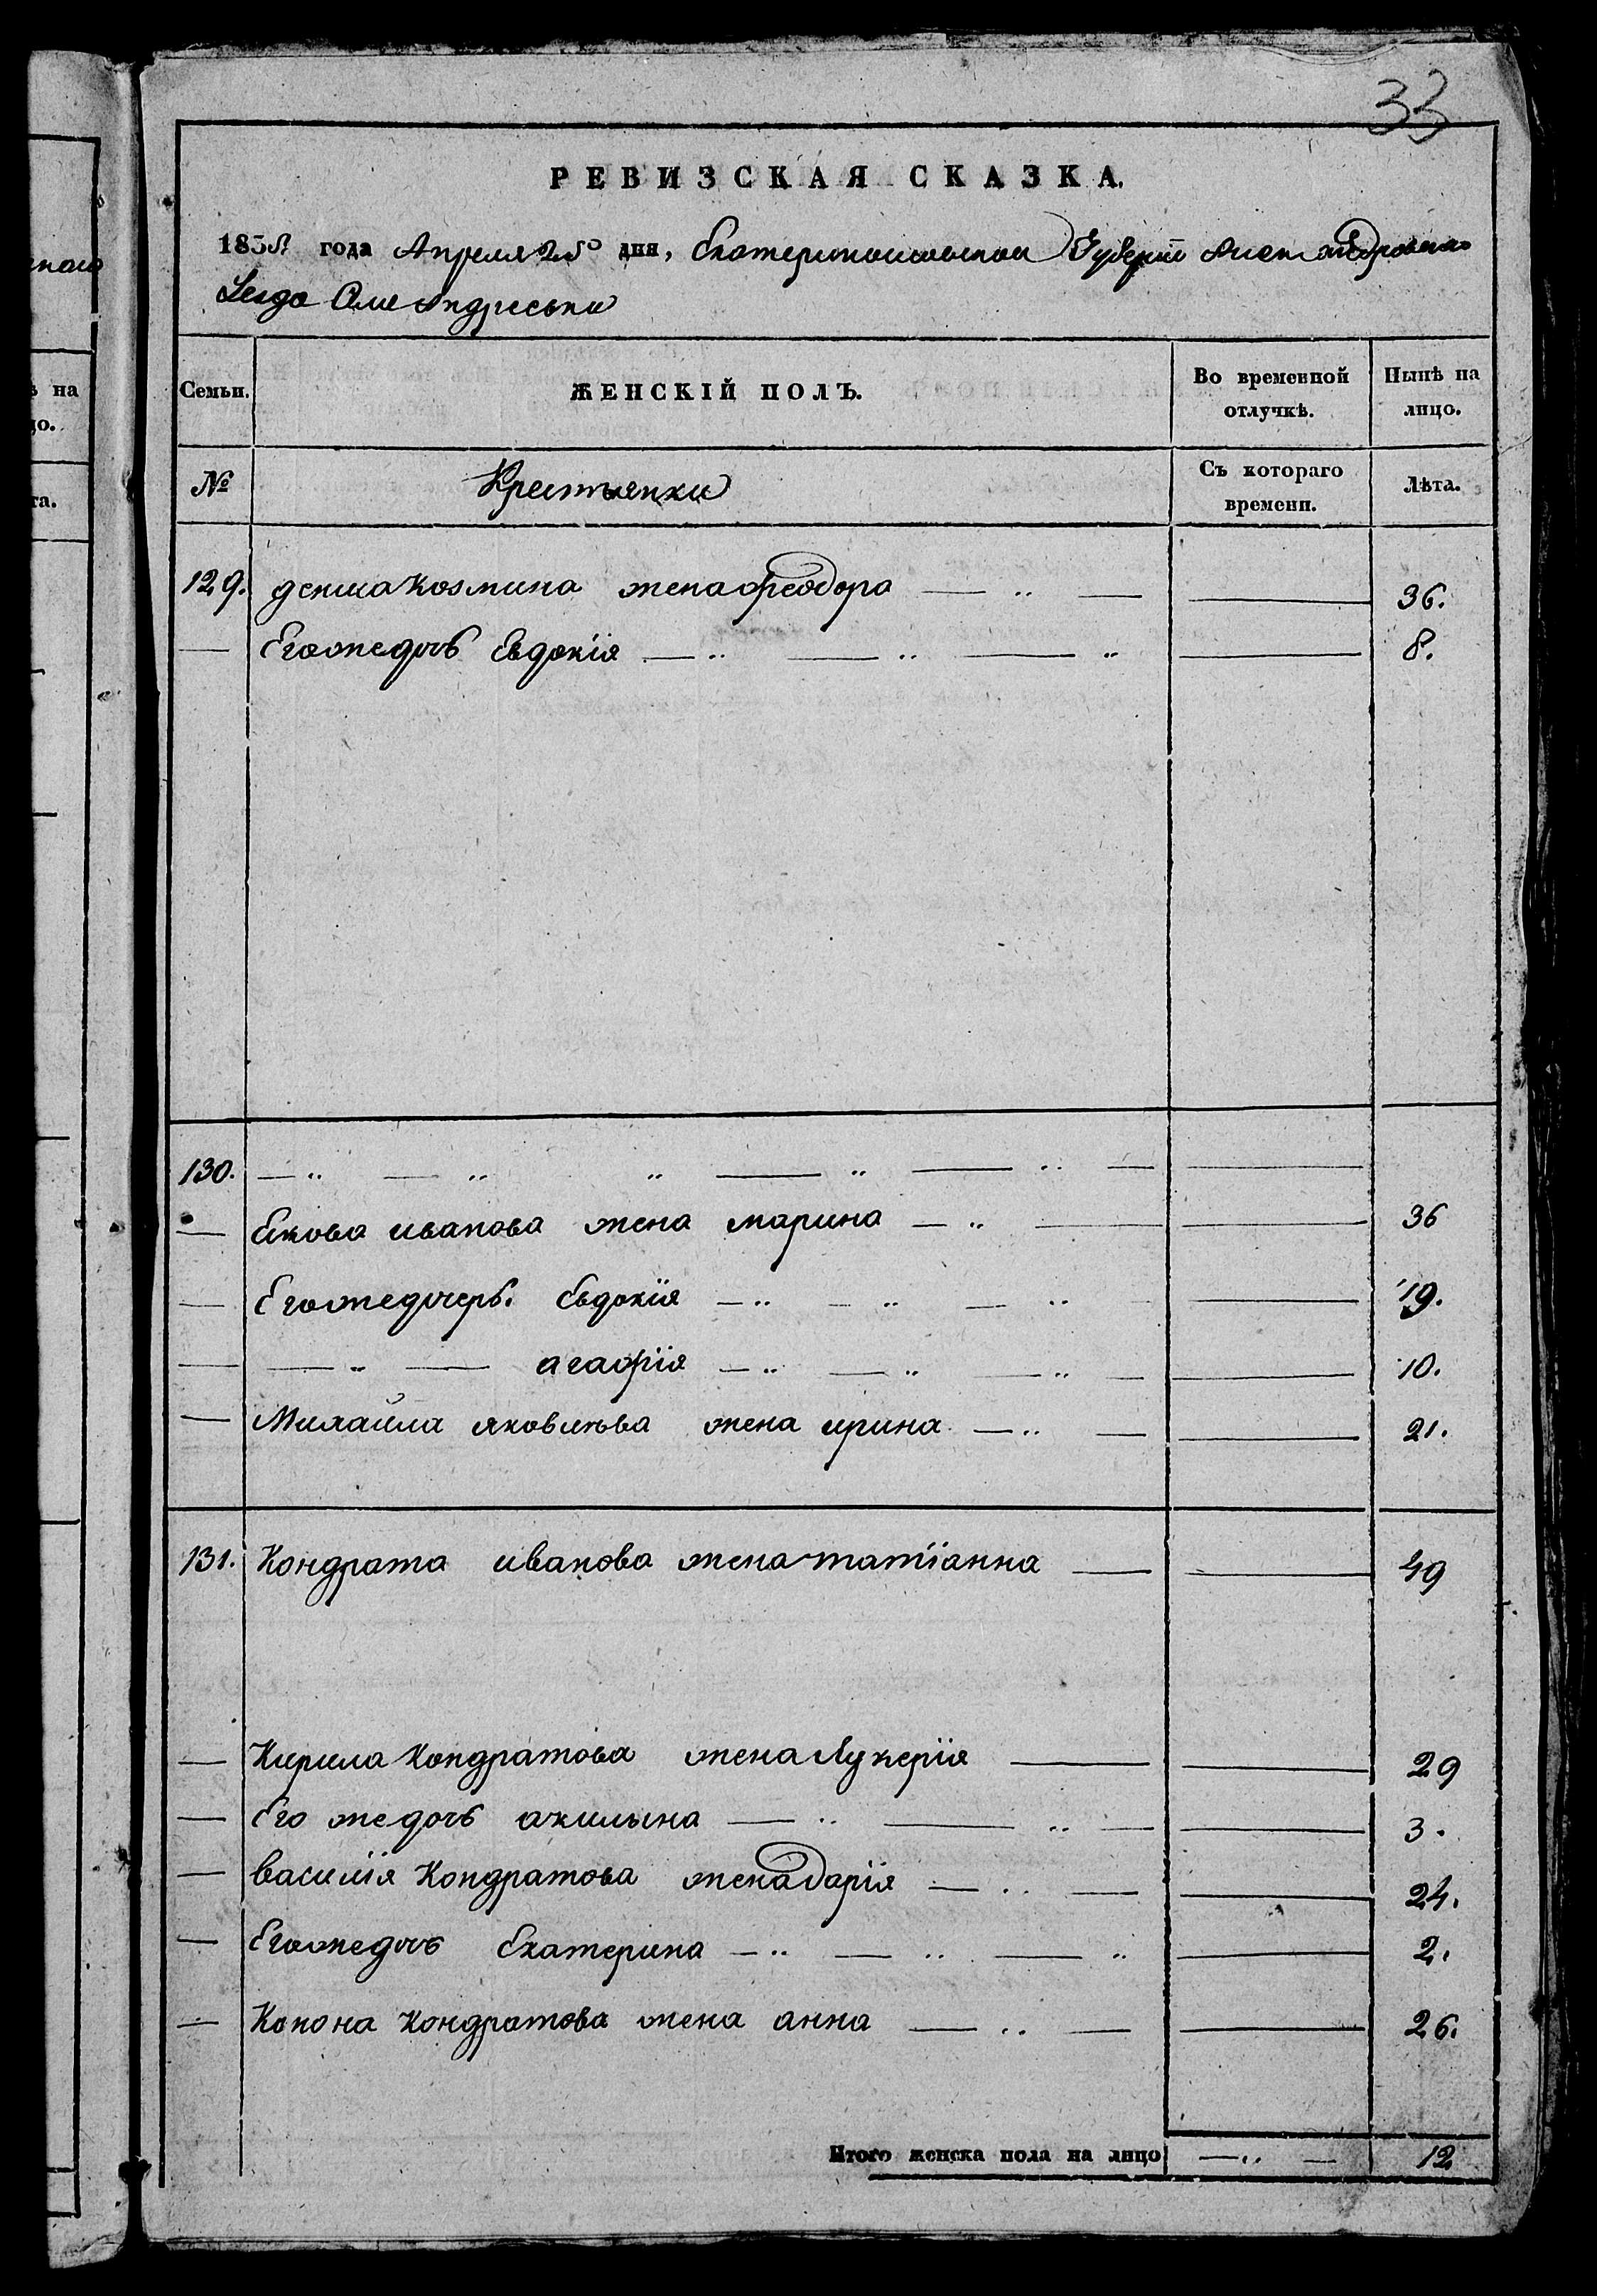 33
РЕВИЗСКАЯ СКАЗКА.
1835 года Апреля 25го дня, Екатеринославской Губерніи Александровскаго
Уезда
Семьи. ЖЕНСКІЙ ПОЛЪ. Во временной отлучкѣ. Нынѣ на лицо.
№ Крестьянки Съ котораго времени. Лѣта.
129. дениса козмина жена феодора 36.
Егожедочь Евдокія 8.
130.
Якова иванова жена марина 36
Егожедочерь. Евдокія 19.
агафія 10.
Михайла яковлева жена ирина 21.
131. Кондрата иванова жена татіанна 49
Кирила Кондратова жена Лукерія 29
Его жедочь акилина 3.
василія Кондратова жена дарія 24.
Егожедочь Екатерина 2.
Конона Кондратова жена анна 26.
Итого женска пола на лицо 12